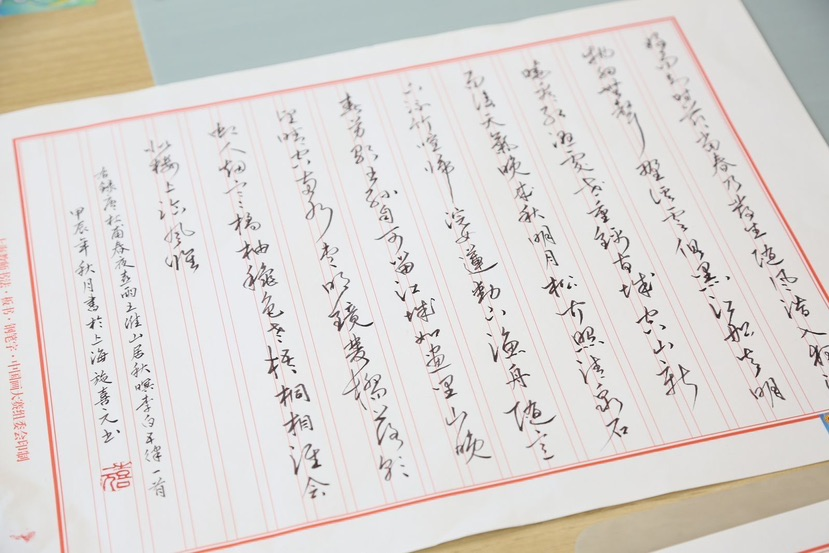 好雨知時節當春乃發生随風潜入夜
物細無聲野径雲俱黑江船火明
曉看紅湿處花重錦官城空山新
雨後天氣晚來秋明月松间照清泉石
上流竹喧歸浣女蓮動下漁舟随意
春芳歇王孫自可留江城如畫里山晚
望晴空兩水夾明鏡雙橋落彩
虹人烟寒橘柚秋色老梧桐相誰念
北樓上临風懷
右録唐杜甫春夜喜雨王維山居秋暝李白五律一首
甲辰年秋月書於上海施喜元书
教师书法·板书·钢笔字·中国画大赛组委会印制